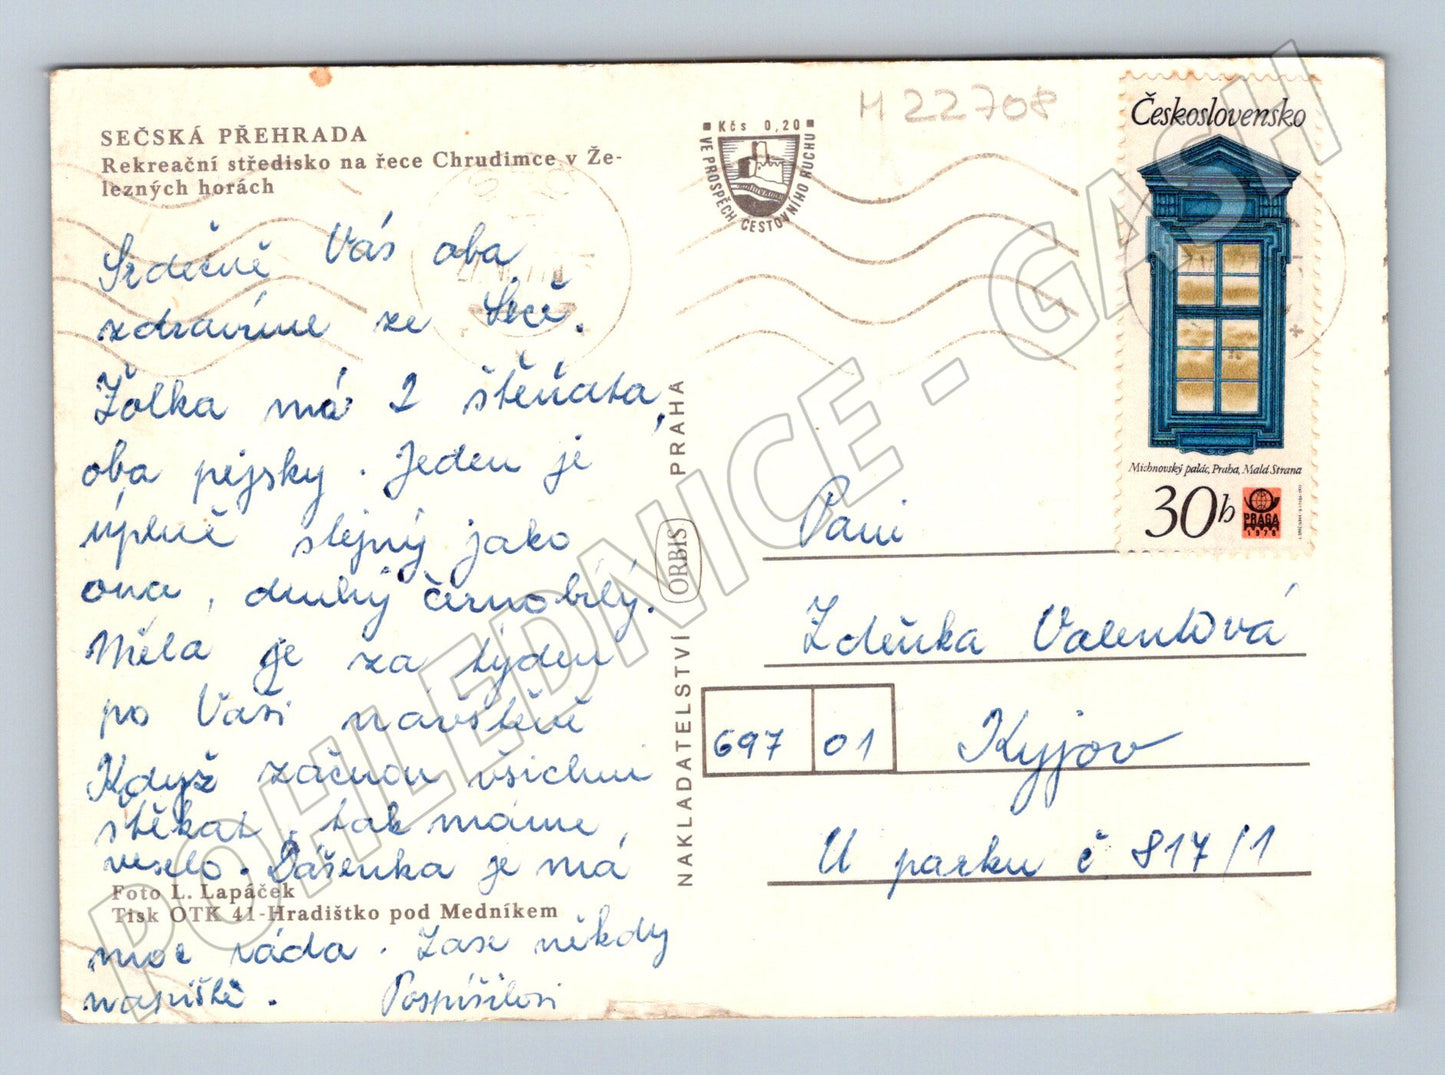 SEČSKÁ PŘEHRADA
Rekreační středisko na řece Chrudimce v Že-
lezných horách
Srdečně Vás oba
zdravíme ze Seče.
Žolka má 2 štěňata,
oba pejsky. Jeden je
úplně stejný jako
ona, druhý černobílý.
Měla je za týden
po Vaší návštěvě
Když začnou všichni
štěkat, tak máme
veselo. Dášenka je má
Foto L. Lapáček
Tisk OTK 41-Hradištko pod Medníkem
moc ráda. Zase někdy
napiště. Pospíšilovi
NAKLADATELSTVÍ ORBIS PRAHA
Kčs 0,20
VE PROSPĚCH CESTOVNÍHO RUCHU
M 22708
Československo
Michnovský palác, Praha, Malá Strana
30h
PRAGA
1978
Paní
Zdeňka Valentová
697 01 Kyjov
U parku č 817/1
POHLEDNICE - GASH